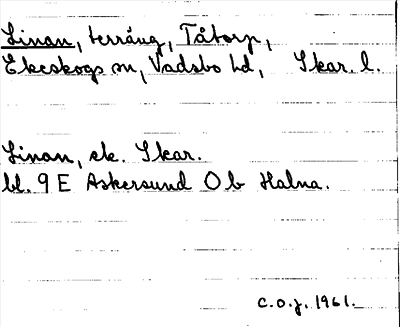 Linan, terräng, Tåtorp,
Ekeskogs sn, Vadsbo hd, Skar. l.
Linan, ek. Skar.
bl. 9 E Askersund Ob Halna.
C.O.J. 1961.